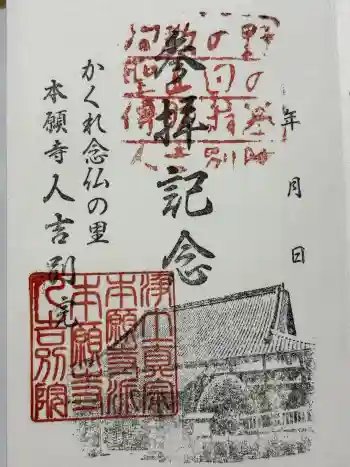 年 月 日
參拝記念
かくれ念仏の里
本願寺人吉別院
浄土真宗
本願寺派
本願寺
人吉別院